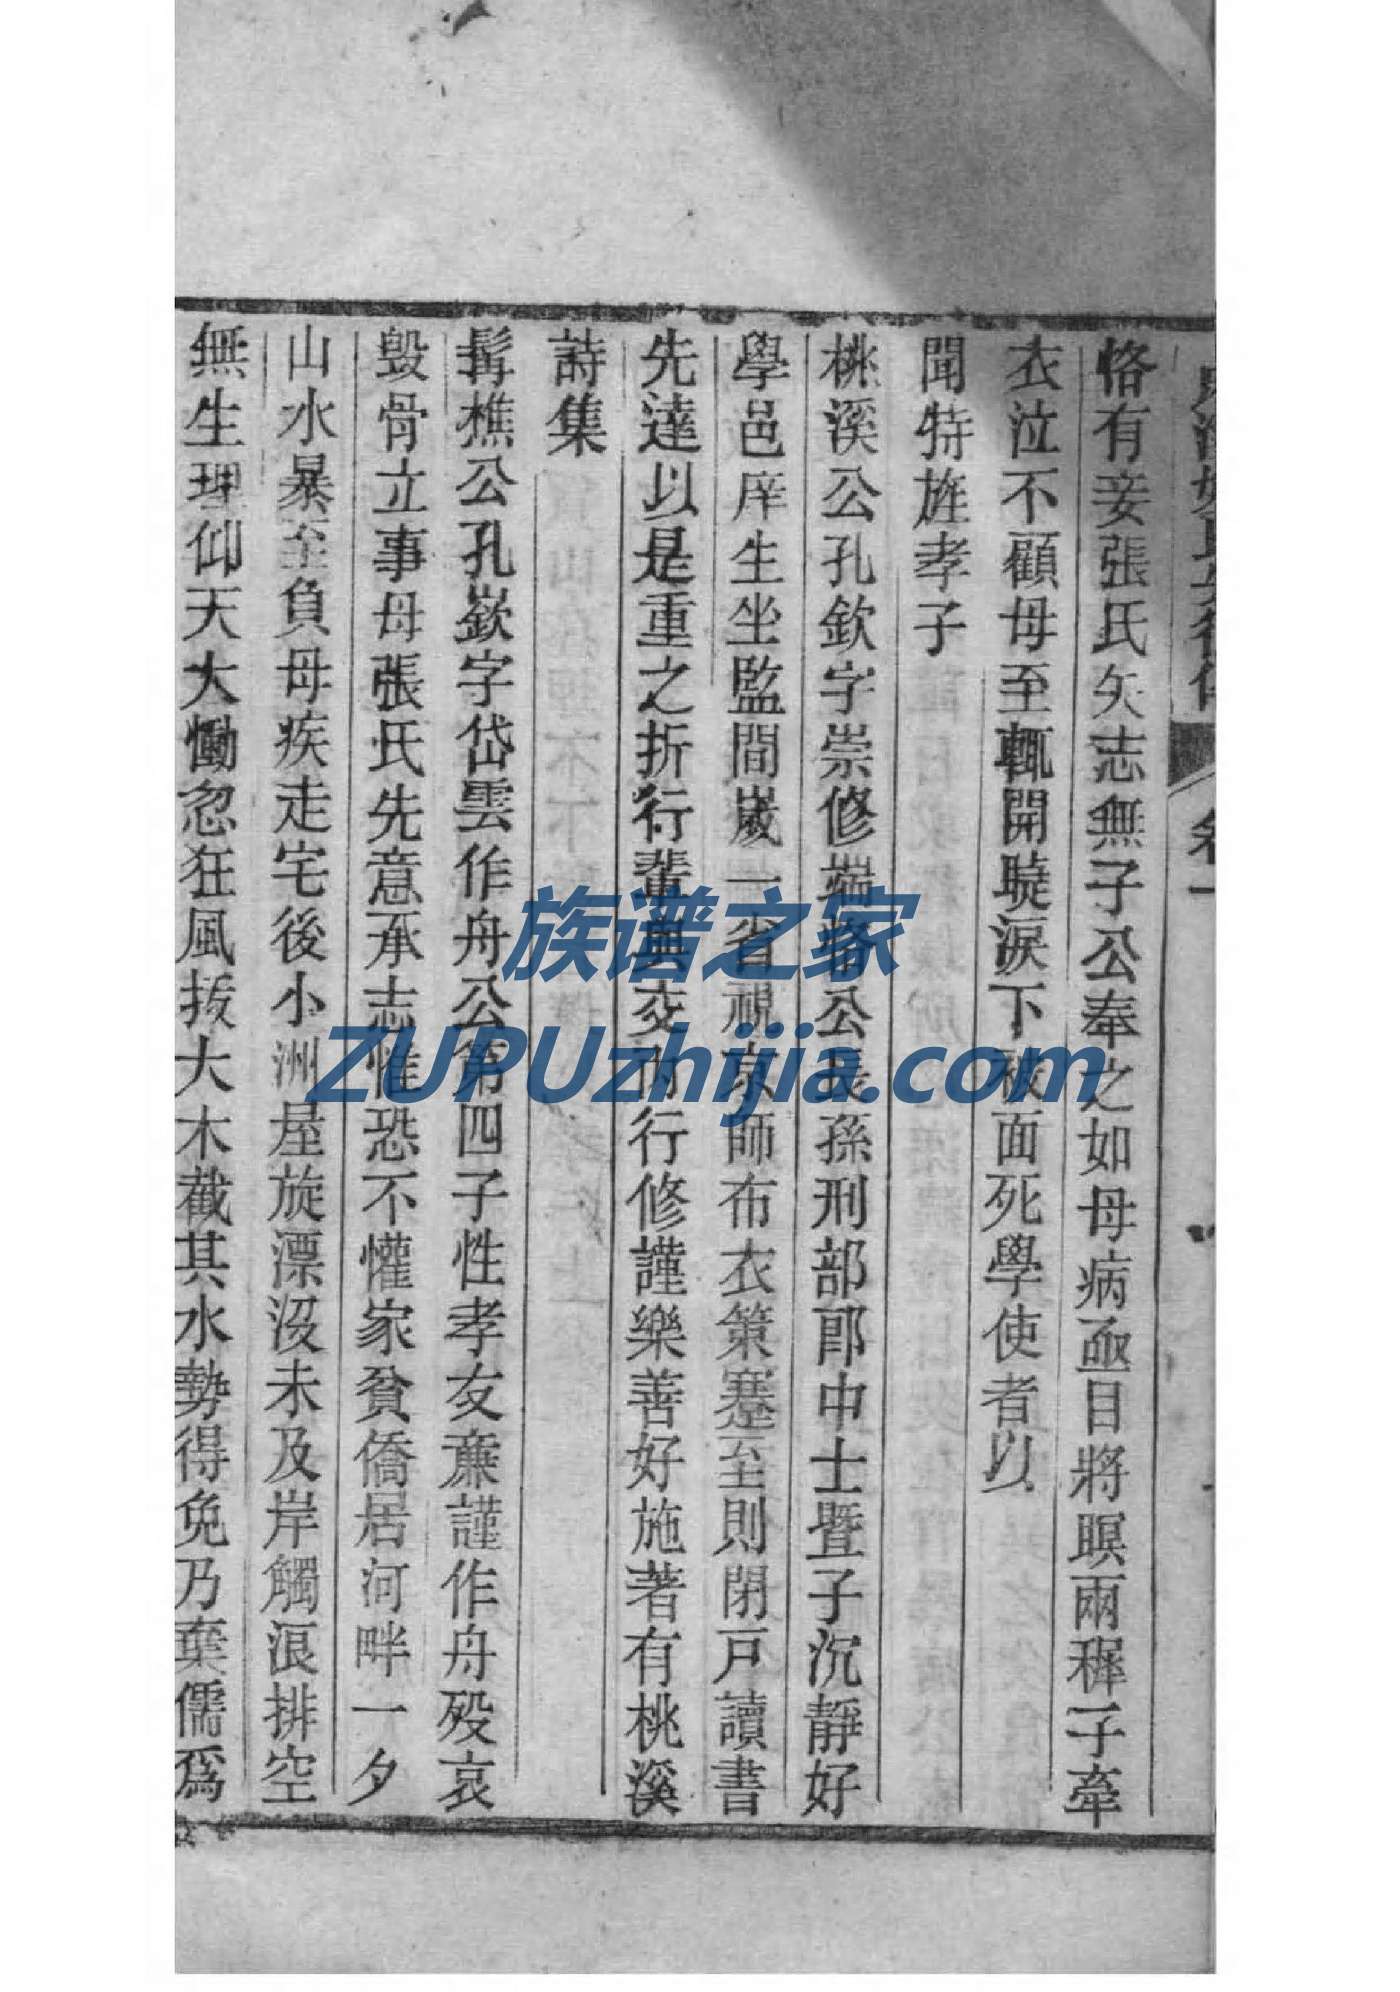 恪有妾張氏矢志無子公奉之如母病亟目將瞑兩穉子牽
衣泣不顧母至輒開睫淚下被面死學使者以
聞特旌孝子
桃溪公孔欽字崇修端恪公長孫刑部郎中士暨子沉靜好
學邑庠生坐監間歲一省視京師布衣策蹇至則閉戸讀書
先達以是重之折行輩與交內行修謹樂善好施著有桃溪
詩集
髯樵公孔嶔字岱雲作舟公第四子性孝友亷謹作舟殁哀
毀骨立事母張氏先意承志惟恐不懽家貧僑居河畔一夕
山水暴至負母疾走宅後小洲屋旋漂沒未及岸觸浪排空
無生理仰天大慟忽狂風拔大木截其水勢得免乃棄儒爲
卷一
族谱之家
ZUPUzhijia.com